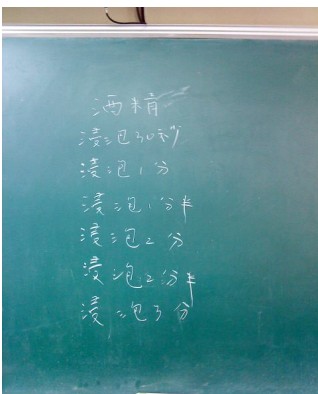 酒精
浸泡30秒
浸泡1分
浸泡1分半
浸泡2分
浸泡2分半
浸泡3分